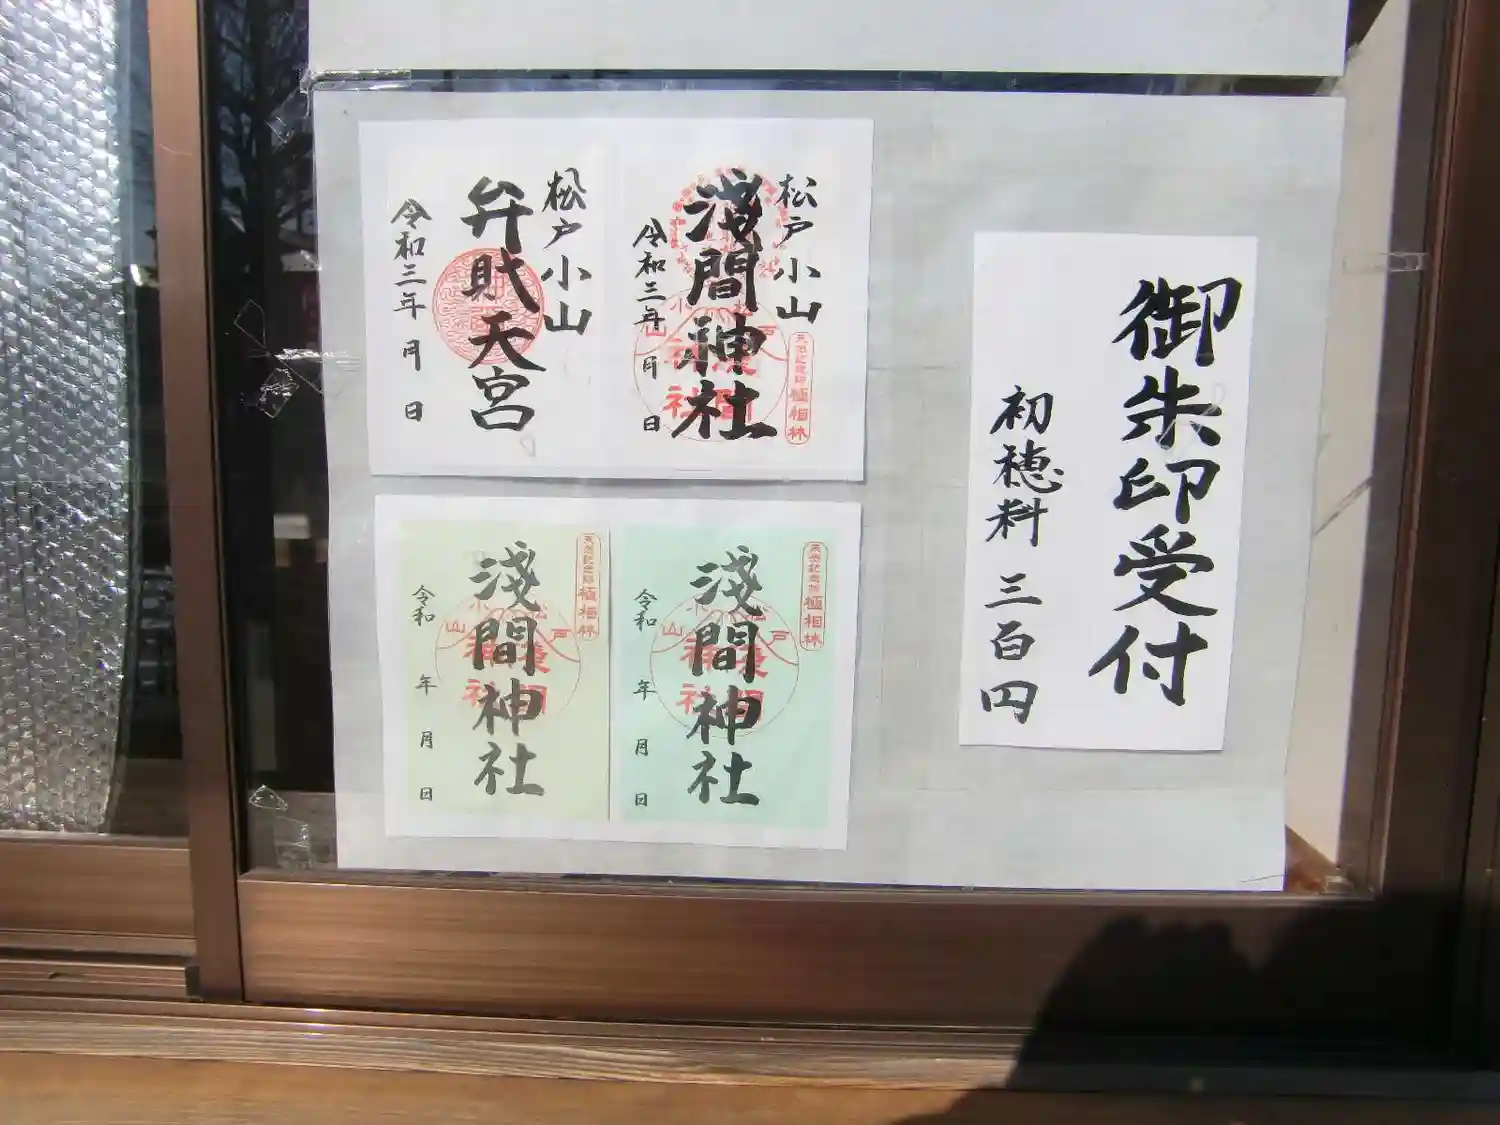 御朱印受付
初穂料 三百円
松戸小山
淺間神社
令和三年 月 日
天然記念物 極相林
松戸小山
弁財天宮
令和三年 月 日
天然記念物 極相林
淺間神社
令和 年 月 日
松戸小山
天然記念物 極相林
淺間神社
令和 年 月 日
松戸小山